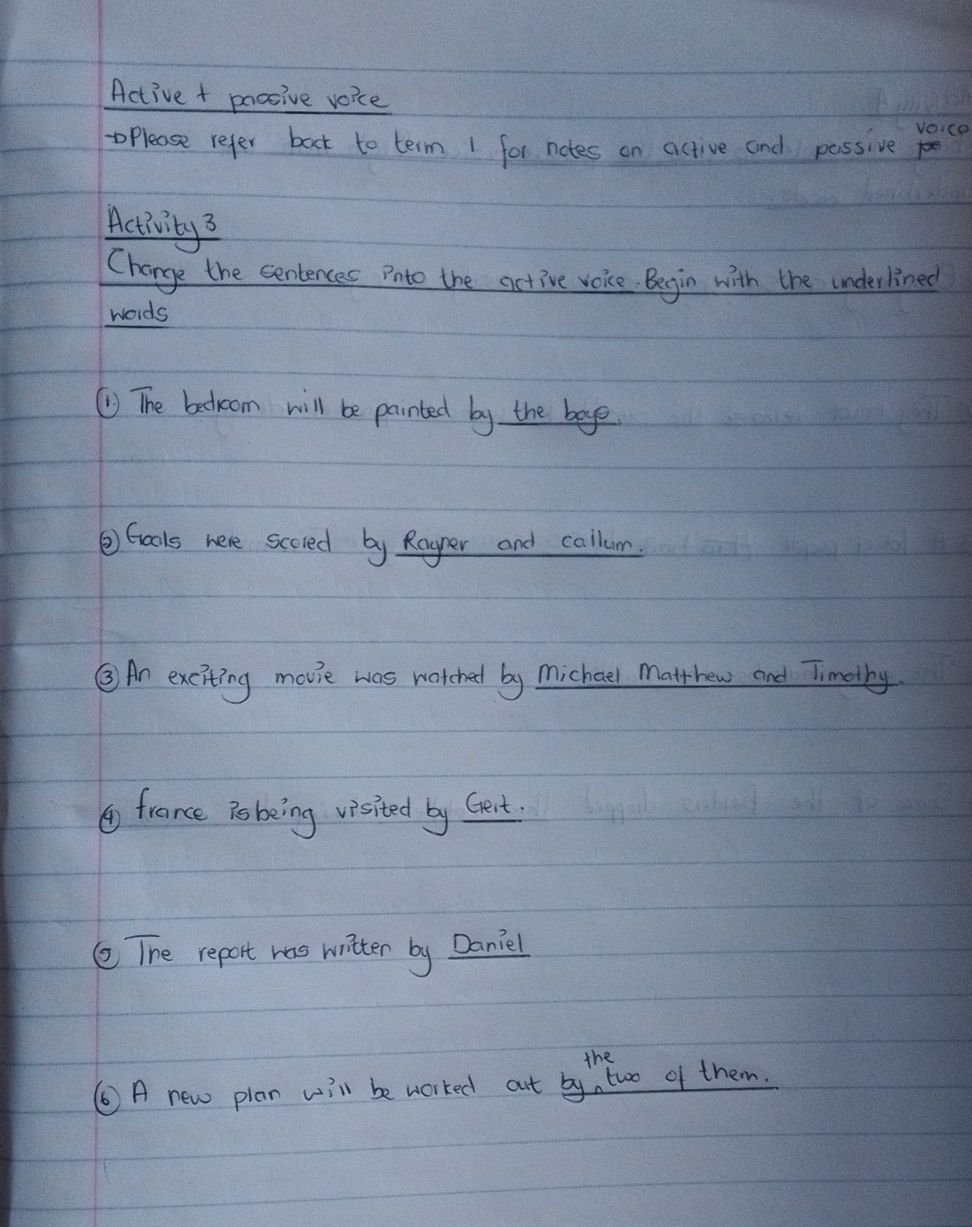 Active + passive voice
→Please refer back to term 1 for notes on active and passive voice
Activity 3
Change the sentences into the active voice. Begin with the underlined
words
① The bedroom will be painted by the boys.
② Goals were scored by Rayner and callum.
③ An exciting movie was watched by Michael Matthew and Timothy.
④ france is being visited by Gert.
⑤ The report was written by Daniel
⑥ A new plan will be worked out by the two of them.